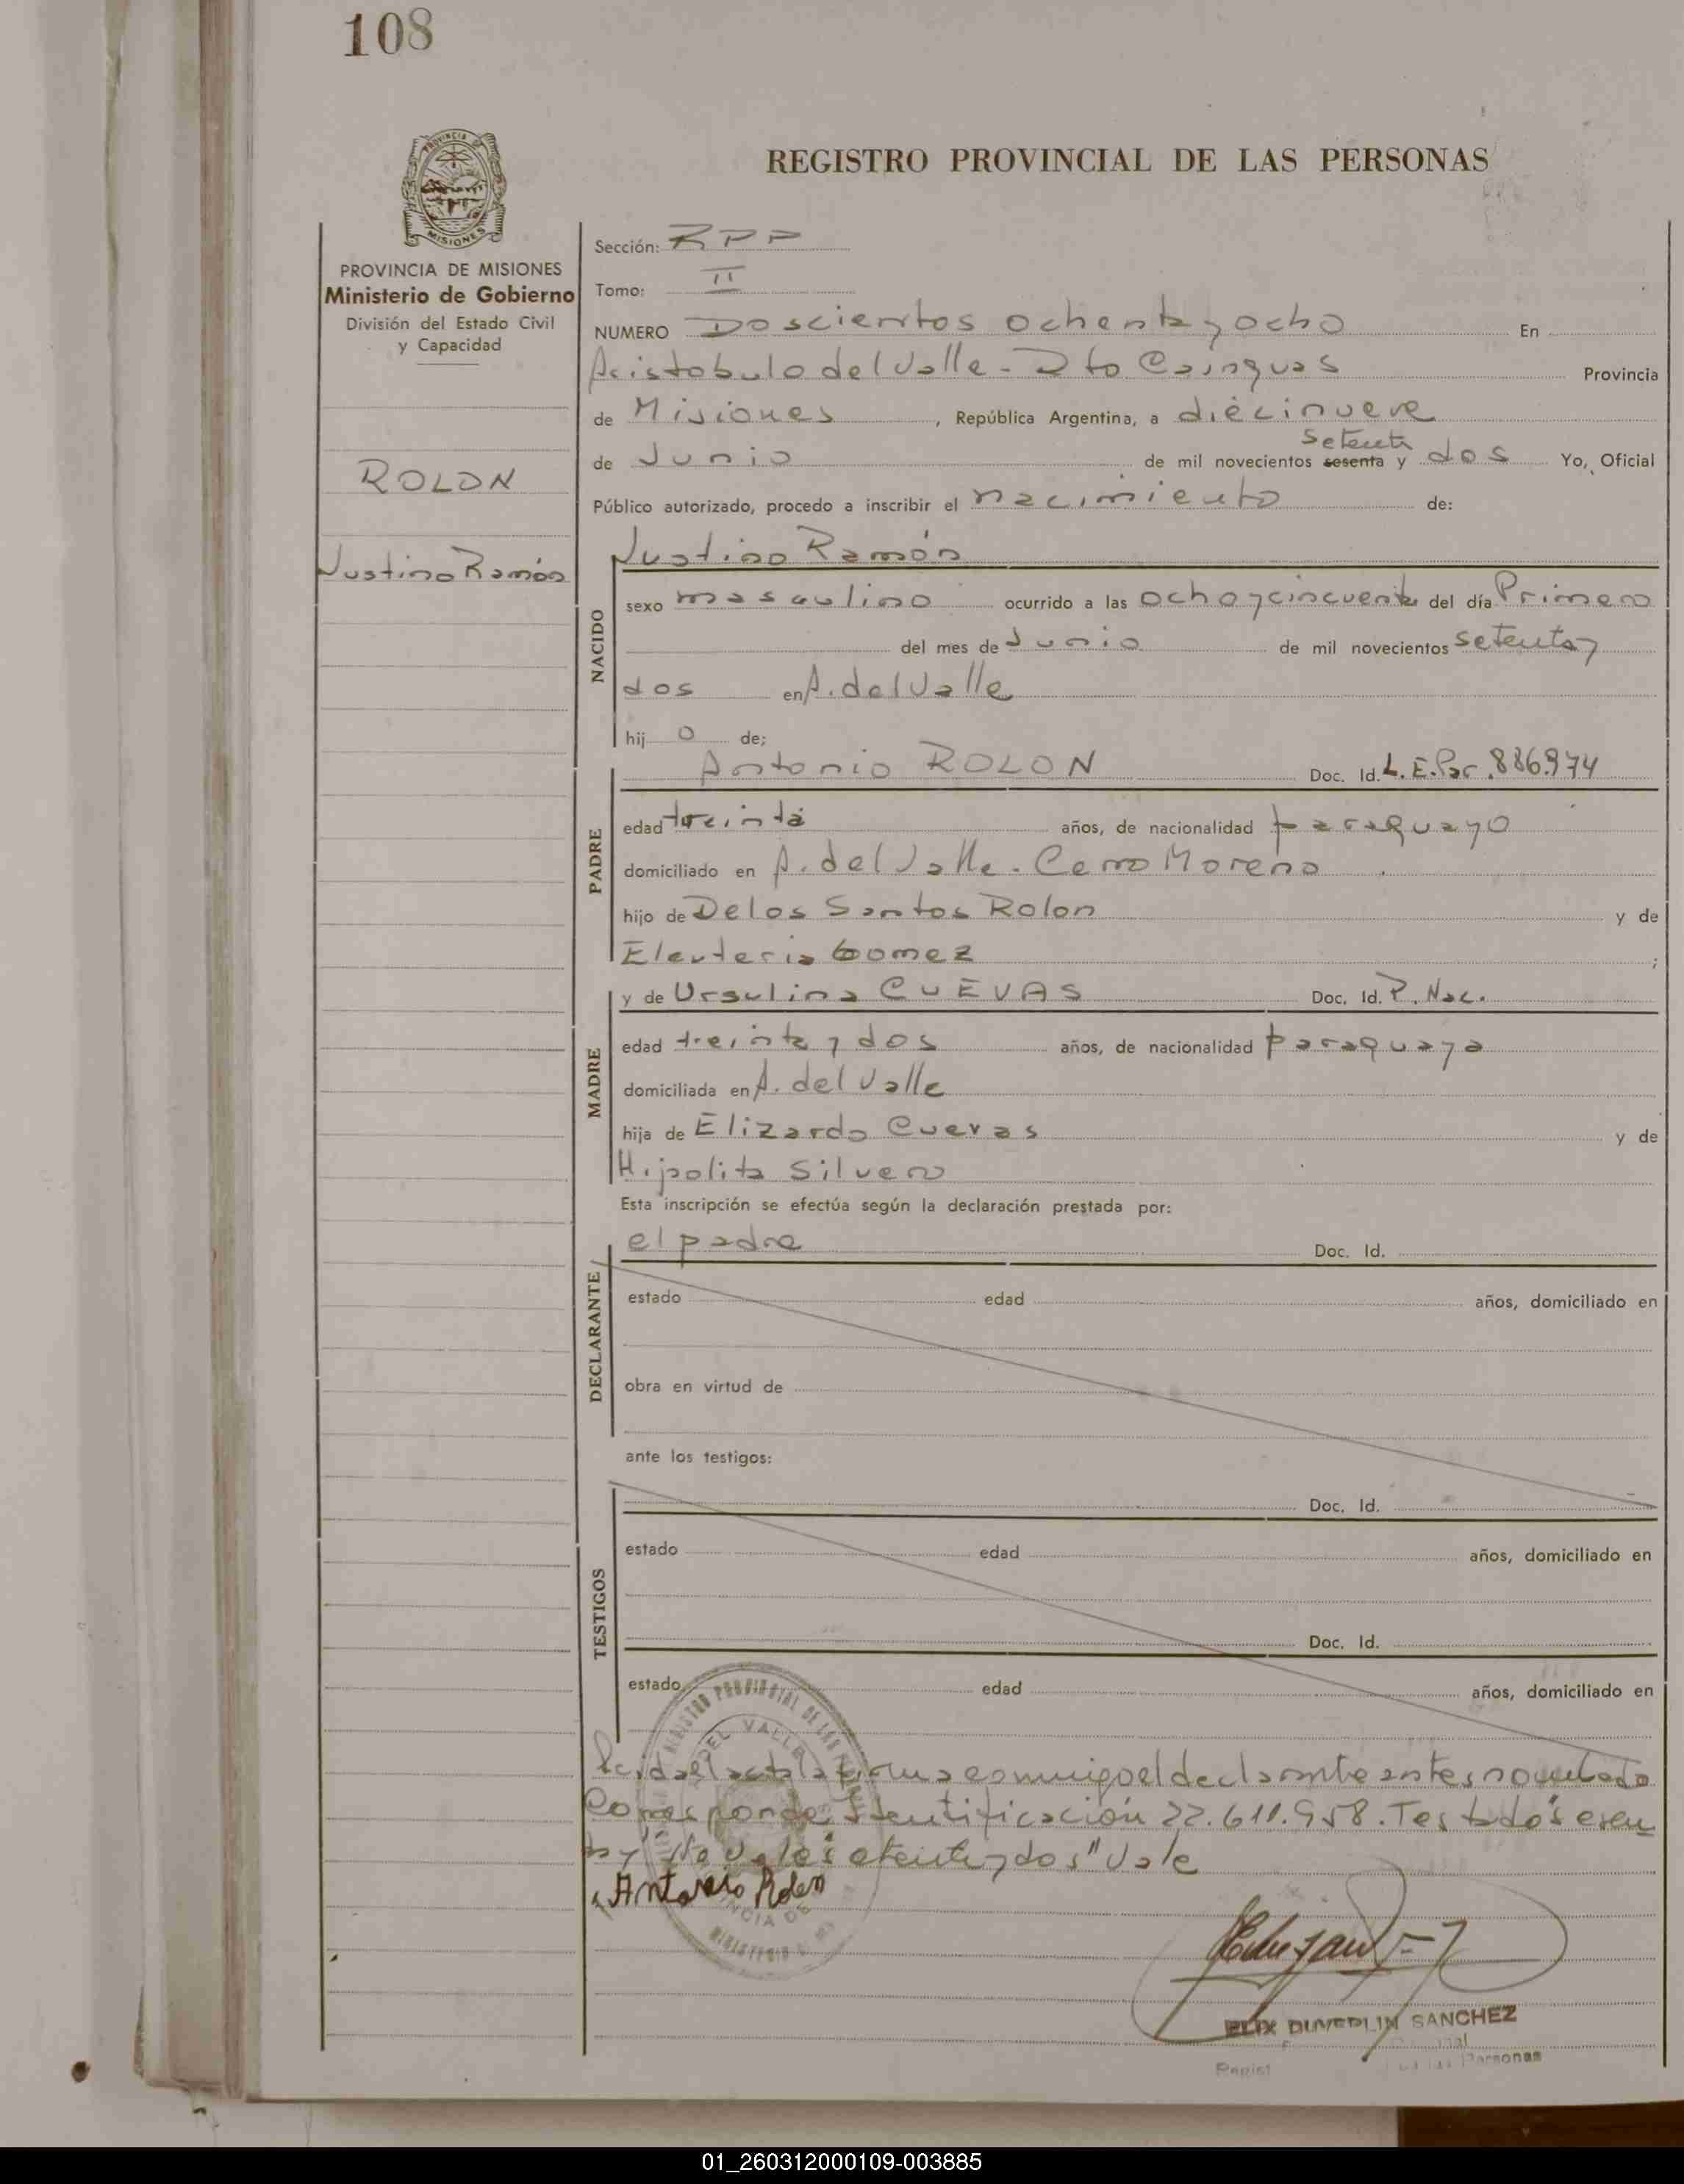 108
PROVINCIA
MISIONES
REGISTRO PROVINCIAL DE LAS PERSONAS
PROVINCIA DE MISIONES
Ministerio de Gobierno
División del Estado Civil
y Capacidad
ROLON
Justino Ramón
Sección: RPP
Tomo: II
NUMERO Doscientos ochenta y ocho En
Aristobulo del Valle - Dto Cainguas Provincia
de Misiones, República Argentina, a diecinueve
setenta
de Junio de mil novecientos sesenta y dos Yo, Oficial
Público autorizado, procedo a inscribir el nacimiento de:
NACIDO
Justino Ramón
sexo masculino ocurrido a las ocho y cincuenta del día Primero
del mes de Junio de mil novecientos setenta y
dos en A. del Valle
hijo de;
PADRE
Antonio ROLON Doc. Id. L.E.Par. 886.974
edad treinta años, de nacionalidad paraguayo
domiciliado en A. del Valle - Cerro Moreno
hijo de Delos Santos Rolon y de
Eleuteria Gomez ;
MADRE
y de Ursulina CUEVAS Doc. Id. P. Nac.
edad treinta y dos años, de nacionalidad paraguaya
domiciliada en A. del Valle
hija de Elizardo Cuevas y de
Hipolita Silvero
Esta inscripción se efectúa según la declaración prestada por:
DECLARANTE
el padre Doc. Id.
estado edad años, domiciliado en
obra en virtud de
ante los testigos:
TESTIGOS
Doc. Id.
estado edad años, domiciliado en
Doc. Id.
estado edad años, domiciliado en
Leida el acta la firma conmigo el declarante antes nombrado
Corresponde Identificación 22.611.958. Testado "sesen
ta y" No vale "setenta y dos" Vale
Antonio Rolon
DEL VALLE
SANCHEZ
Regist Personas
01_260312000109-003885